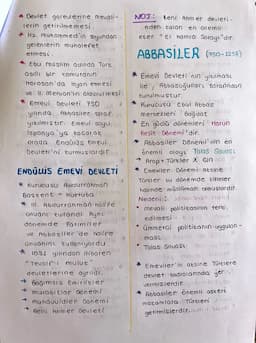 Devlet görevlerine mevali-
lerin getirilmemesi
Hz. Muhammed'in soyundan
gelenlerin muhalefet
etmesi
Ebu Müslim adında Türk
asıllı bir komutanın
Horasan'da isyan etmesi
ve II. Mervan'ın öldürülmesi
Emevi Devleti 750
yılında Abbasiler taraf.
yıkılmıştır. Emevi soyu
İspanya'ya kaçarak
orada Endülüs Emevi
Devleti'ni kurmuşlardır.
ENDÜLÜS EMEVİ DEVLETİ
Kurucusu Abdurrahman
Başkenti = Kurtuba
III. Abdurrahman halife
ünvanı kullandı. Aynı
dönemde Fatımiler
ve Abbasiler'de halife
ünvanını kullanıyordu
1031 yılından itibaren
"Tevaif-i mülük"
devletlerine ayrıldı.
→ Bağımsız Emirlikler
→ Murabıtlar dönemi
→ Muvahhidler Dönemi
→ Beni Ahmer Devleti
NOT: Beni Ahmer Devleti-
nden kalan en önemli
eser "El Hamra Sarayı"dır.
ABBASİLER (750-1258)
Emevi Devleti'nin yıkılması
ile, Abbasoğulları tarafından
kurulmuştur.
Kurucusu Ebul Abbas
Merkezleri Bağdat
En güçlü dönemleri "Harun
Reşit Dönemi"dir.
Abbasiler Dönemi'nin en
önemli olayı Talas Savaşı
→ Arap + Türkler X Çin
Emeviler Dönemi aksine
Türkler bu dönemde kitleler
halinde müslüman olmuşlardır.
Nedeni:
• Mevali politikasının terk
edilmesi
• Ümmetçi politikanın uygulan-
ması
• Talas Savaşı
Emeviler'in aksine Türklere
devlet kadrolarında yer
vermişlerdir.
Abbasiler önemli askeri
makamlara Türkleri
getirmişlerdir.